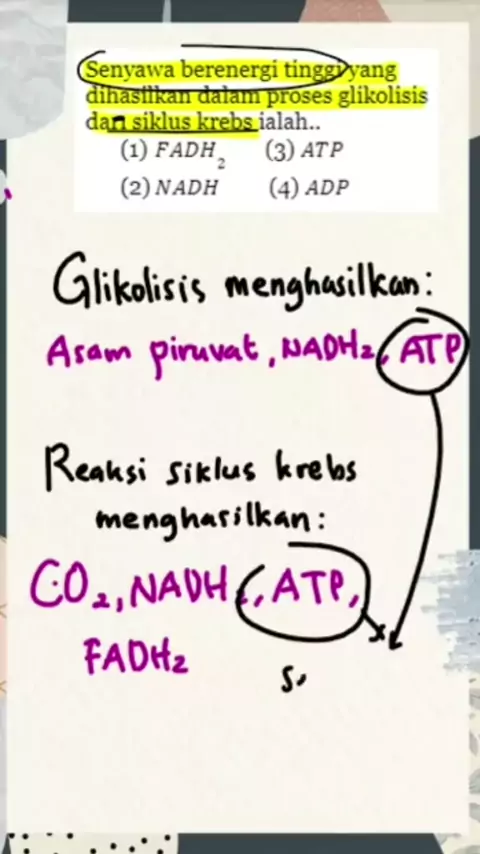 Senyawa berenergi tinggi yang
dihasilkan dalam proses glikolisis
dan siklus krebs ialah..
(1) FADH₂ (3) ATP
(2) NADH (4) ADP
Glikolisis menghasilkan:
Asam piruvat, NADH₂, ATP
Reaksi siklus krebs
menghasilkan:
CO₂, NADH₂, ATP,
FADH₂
S